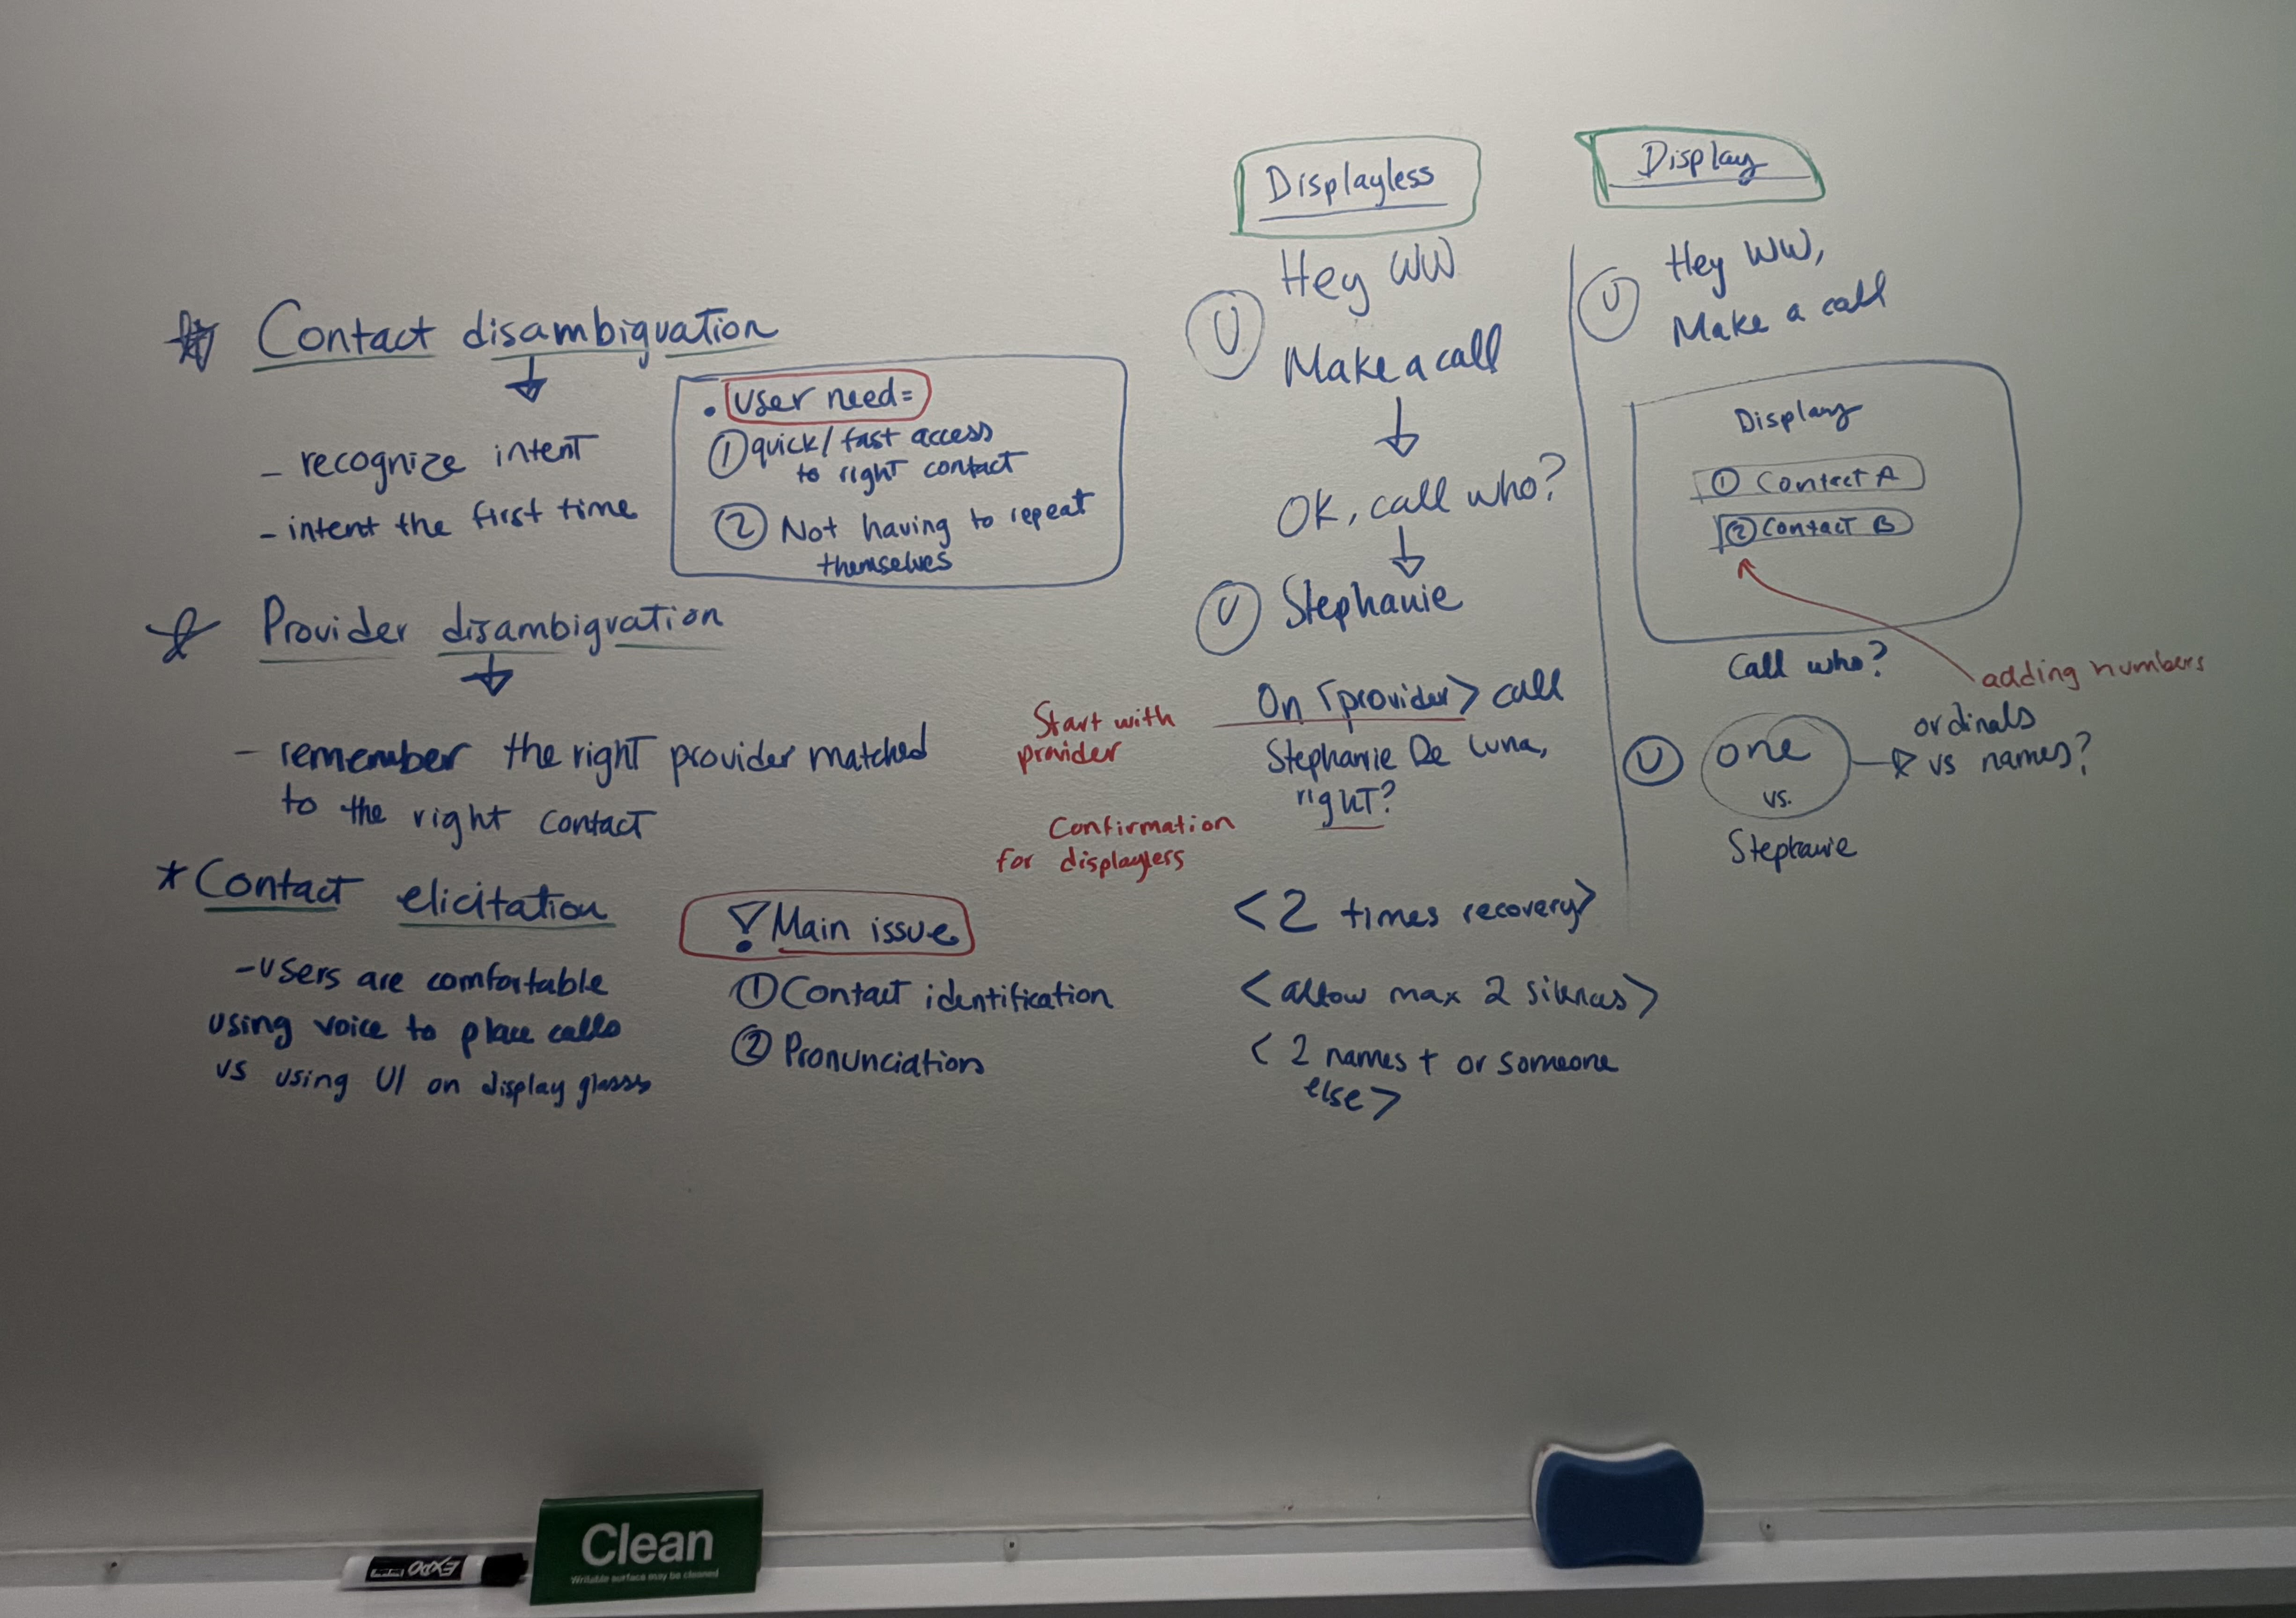 Contact disambiguation
- recognize intent
- intent the first time
. User need=
① quick/fast access
to right contact
② Not having to repeat
themselves
Provider disambiguation
- remember the right provider matched
to the right contact
* Contact elicitation
- Users are comfortable
using voice to place calls
vs using UI on display glasses
! Main issue
① Contact identification
② Pronunciation
Displayless
U
Hey WW
Make a call
OK, call who?
U Stephanie
Start with
provider
On <provider> call
Stephanie De Luna,
right?
Confirmation
for displayless
<2 times recovery>
<allow max 2 silences>
<2 names + or someone
else>
Display
U
Hey WW,
Make a call
Display
① Contact A
② Contact B
adding numbers
Call who?
U one
vs.
Stephanie
ordinals
vs names?
EXPO
Clean
Writable surface may be cleaned